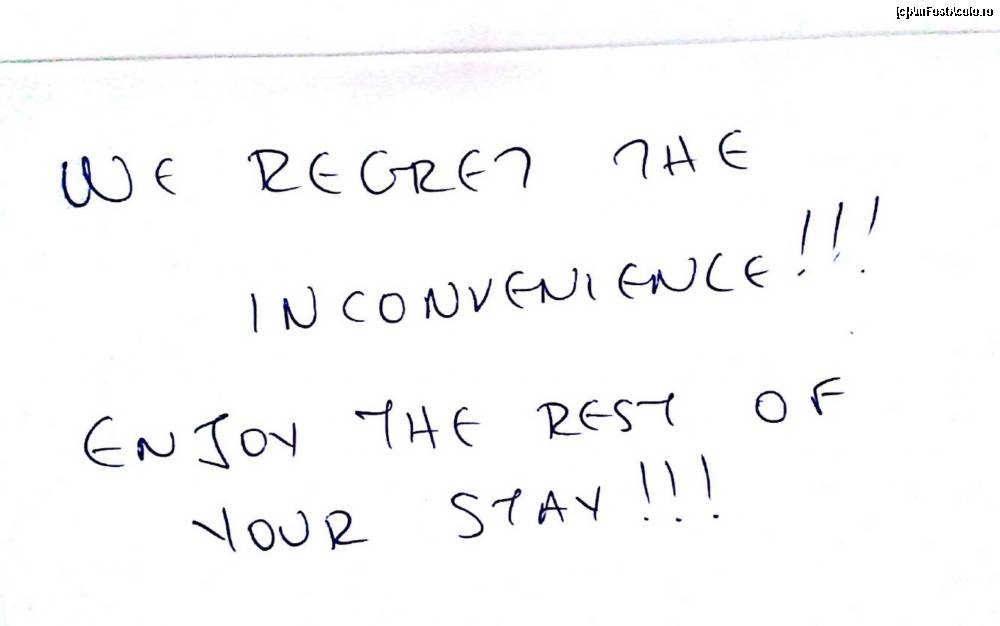 [c]AmFostAcolo.ro
WE REGRET THE
INCONVENIENCE!!!
ENJOY THE REST OF
YOUR STAY!!!